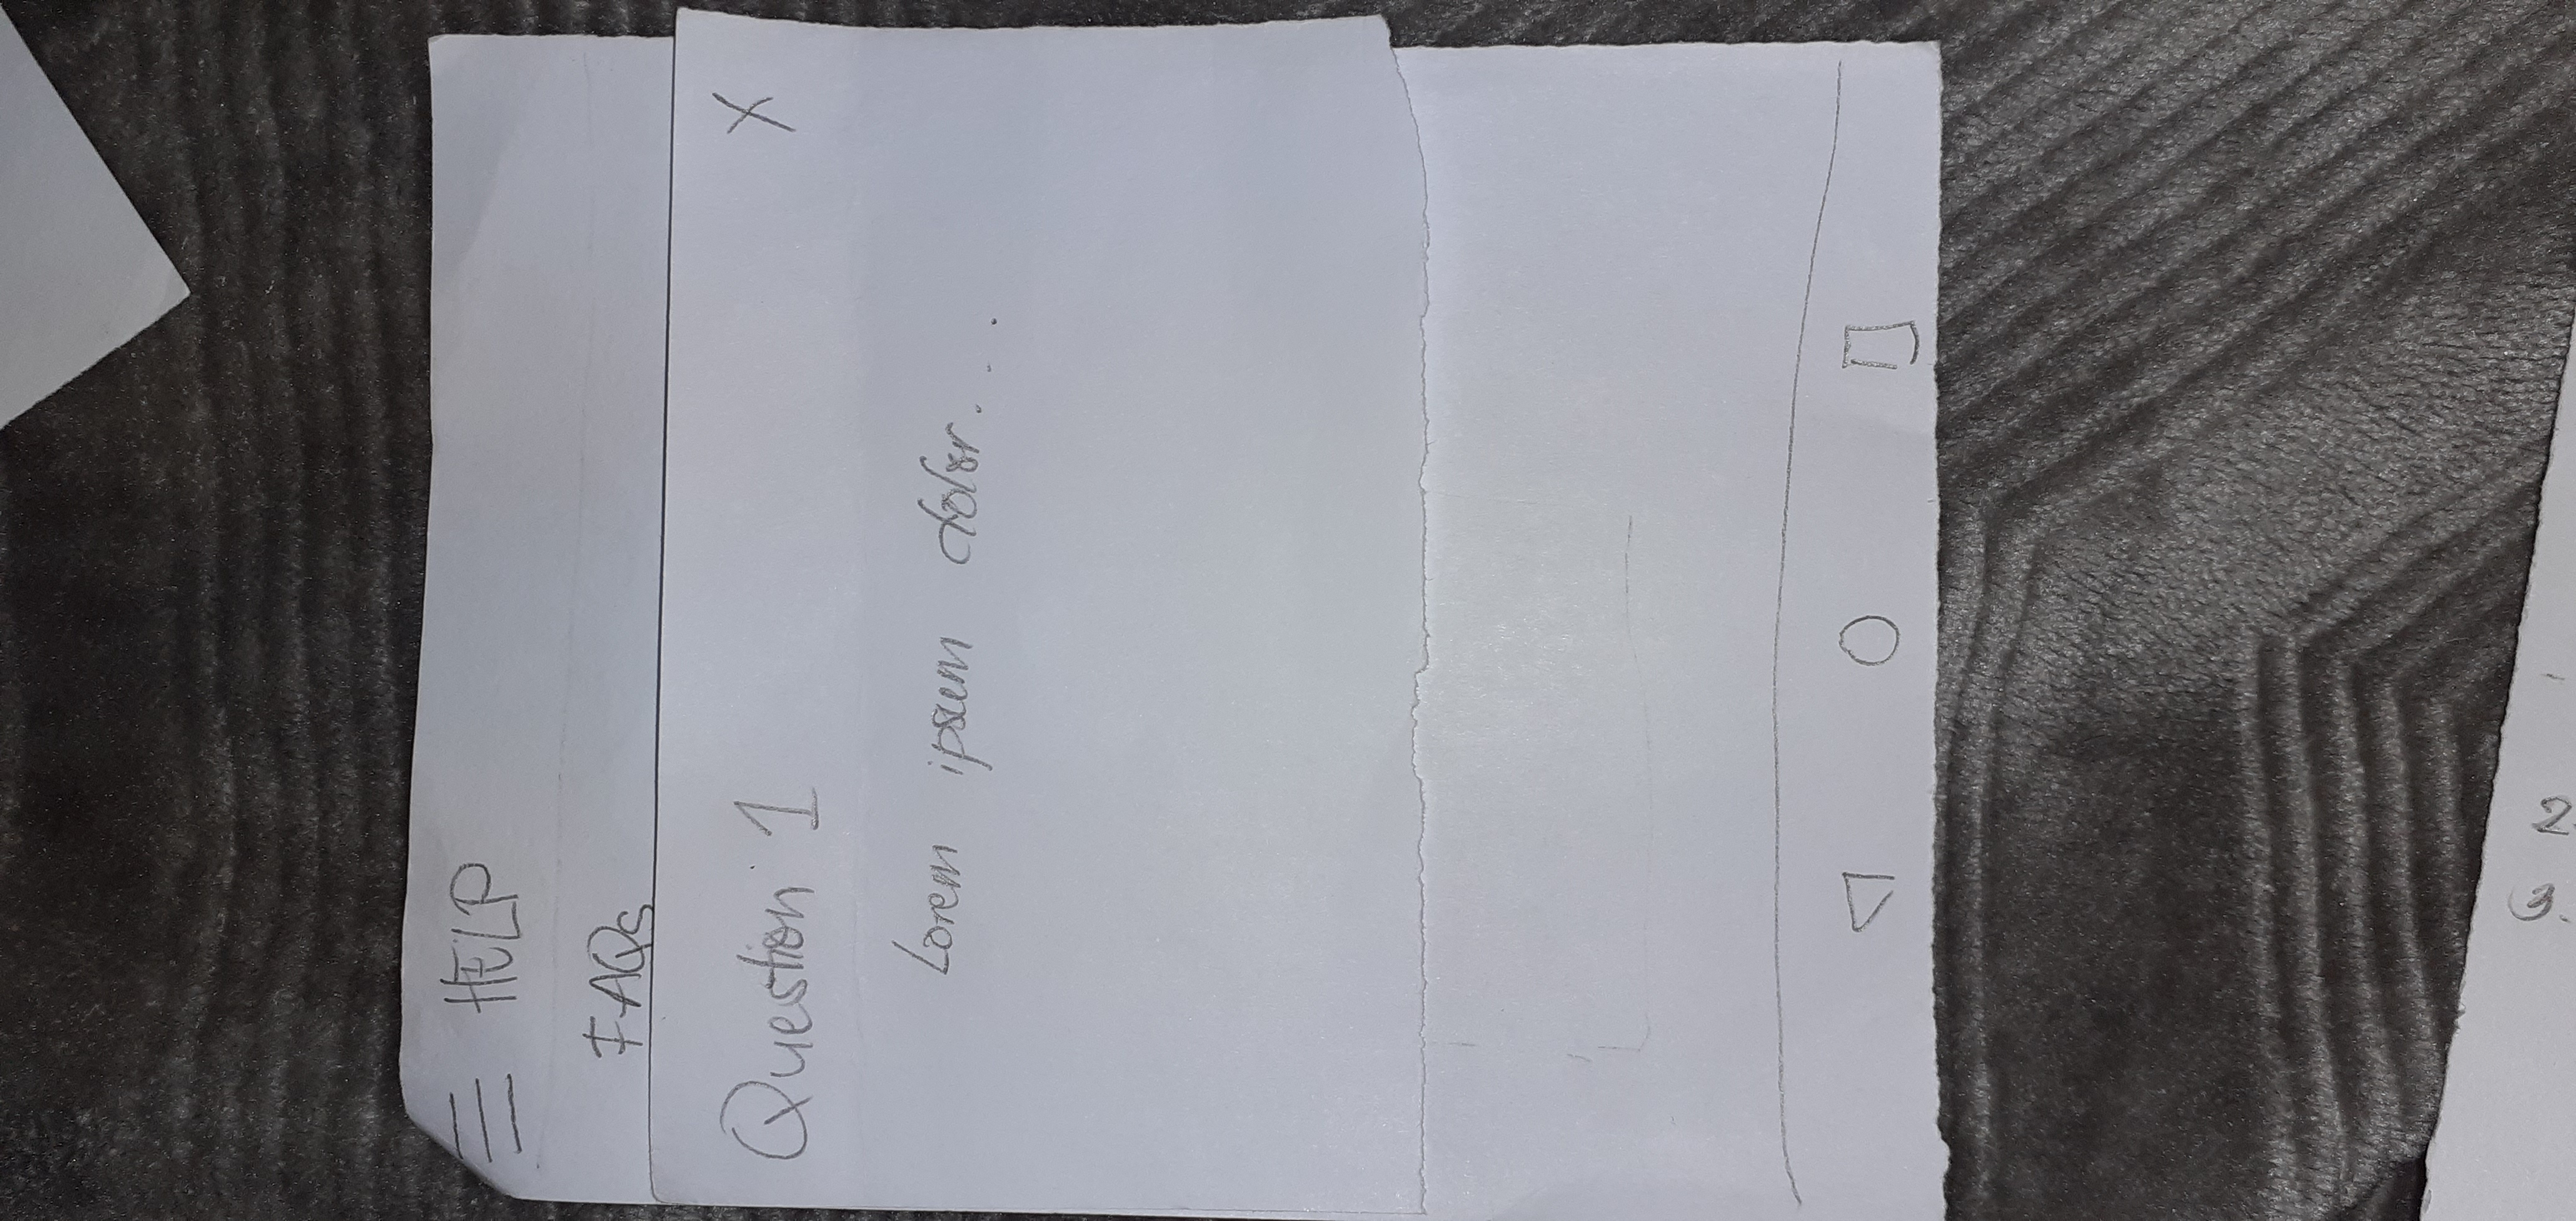 HELP
FAQs
Question 1 X
Lorem ipsum dolor...